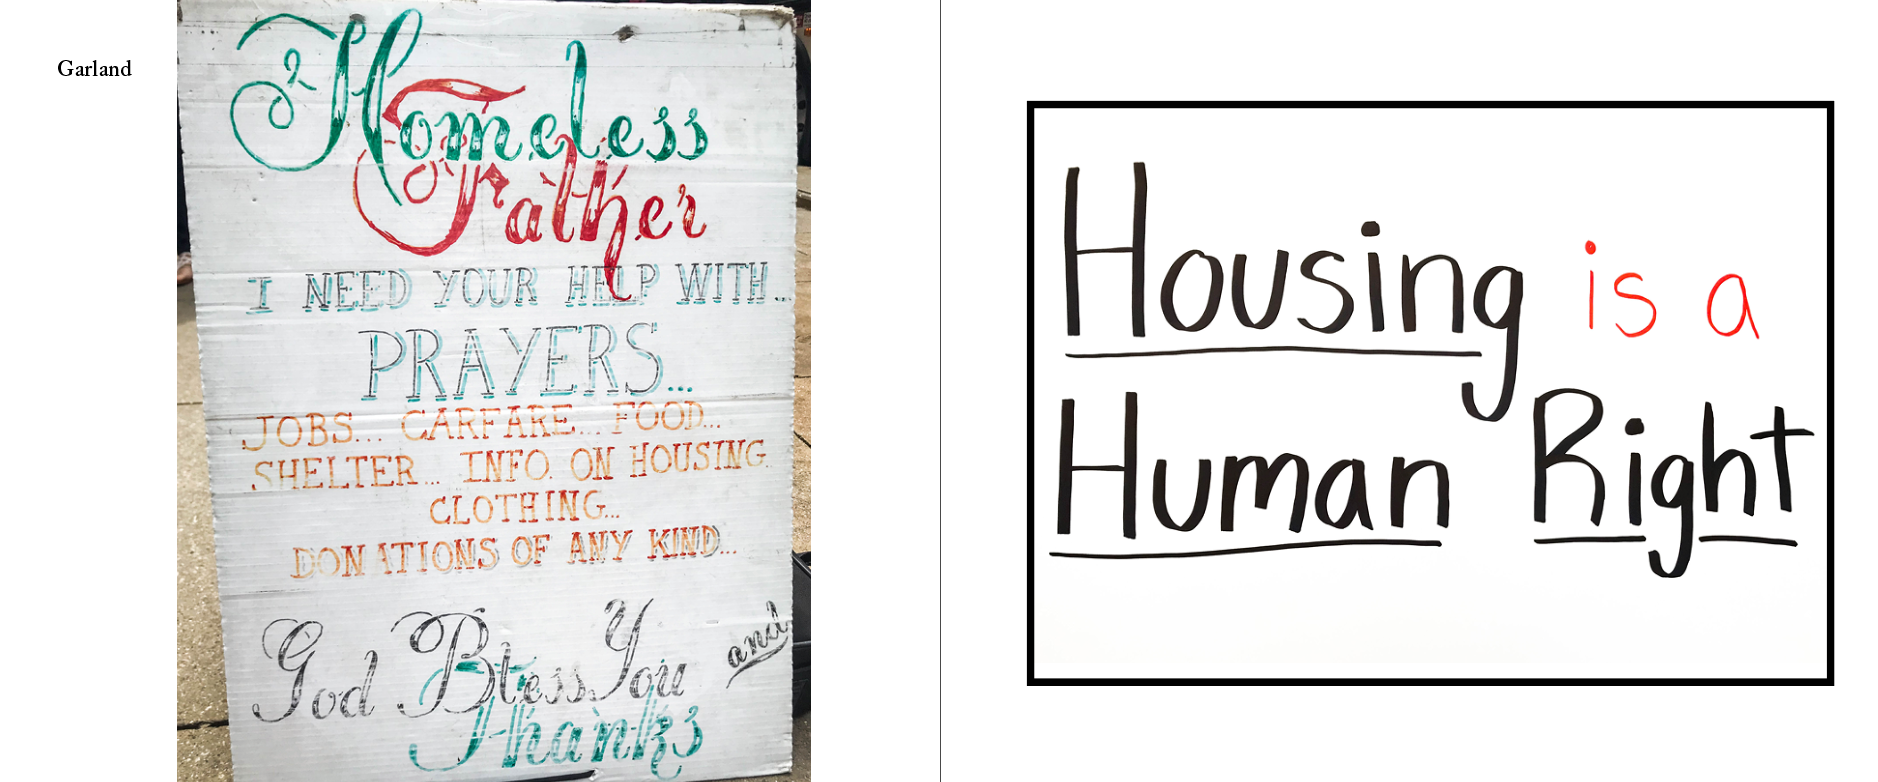 Garland
Homeless
Father
I NEED YOUR HELP WITH...
PRAYERS...
JOBS... CARFARE... FOOD...
SHELTER... INFO. ON HOUSING
CLOTHING...
DONATIONS OF ANY KIND...
God Bless You and
Thanks
Housing is a
Human Right